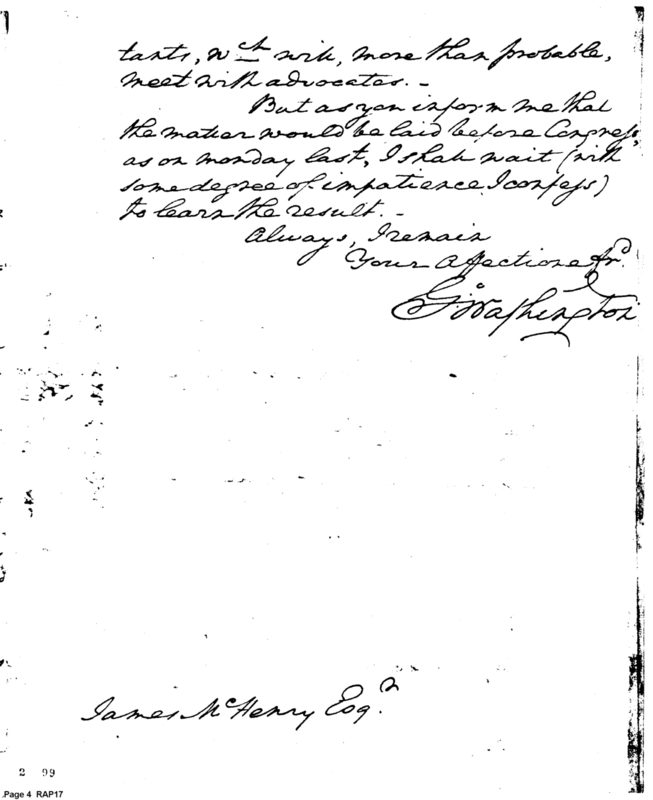 tants, wch will, more than probable,
meet with advocates. -
But as you inform me that
the matter would be laid before Congress,
as on monday last, I shall wait (with
some degree of impatience I confess)
to learn the result. -
Always, I remain
Your Affectione frd.
Go: Washington
James McHenry Esqr.
2 99
.Page 4 RAP17